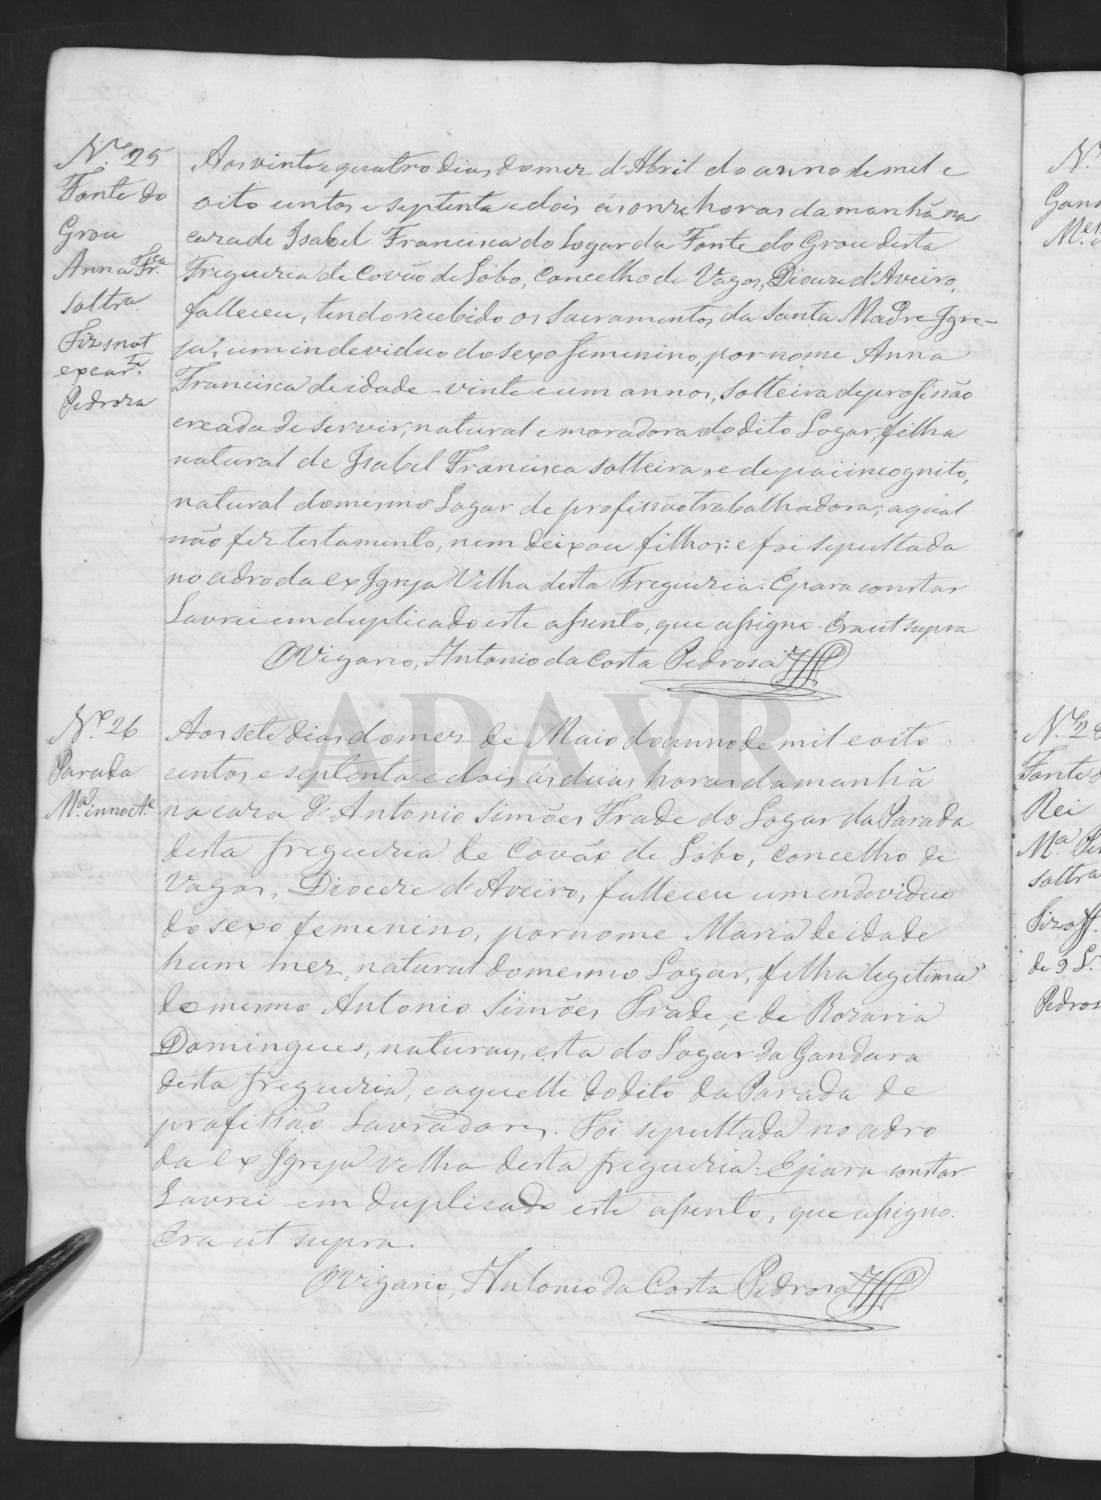 Nº 25
Fonte do
Grou
Anna Fr.ca
soltra
Fiz
Pedroza
Aos vinte e quatro dias do mez d'Abril do anno de mil e
oito centos e septenta e dois ás onze horas da manhã na
caza de Isabel Francisca do Logar da Fonte do Grou desta
Freguezia de Covão de Lobo, Concelho de Vagos, Dioceze d'Aveiro,
falleceu, tendo recebido os Sacramentos da Santa Madre Igre-
ja, um indeviduo do sexo femenino, por nome Anna
Francisca de idade vinte e um annos, solteira de profissão
creada de servir, natural e moradora do dito Logar, filha
natural de Isabel Francisca solteira, e de pai incognito,
natural do mesmo Logar de profissão trabalhadora; a qual
não fez testamento, nem deixou filhos: e foi sepultada
no adro da ex Igreja Velha desta Freguezia. E para constar
Lavrei em duplicado este assento, que assigno. Era ut supra
O Vigario, Antonio da Costa Pedrosa
ADAVR
Nº 26
Parada
M.ª innoct.e
Aos sete dias do mez de Maio do anno de mil e oito
centos e septenta e dois ás duas horas da manhã
na caza d'Antonio Simões Frade do Logar da Parada
desta freguezia de Covão de Lobo, Concelho de
Vagos, Dioceze d'Aveiro, falleceu um indeviduo
do sexo femenino, por nome Maria de idade
hum mez, natural do mesmo Logar, filha legitima
do mesmo Antonio Simões Frade, e de Rozaria
Domingues, naturaes, esta do Logar da Gandara
desta freguezia, e aquelle do dito da Parada de
profissão Lavradores. Foi sepultada no adro
da ex Igreja velha desta freguezia. E para constar
Lavrei em duplicado este assento, que assigno.
Era ut supra.
O Vigario, Antonio da Costa Pedrosa
Nº 2
Fonte
Rei
M.ª
soltra
de 9 L.